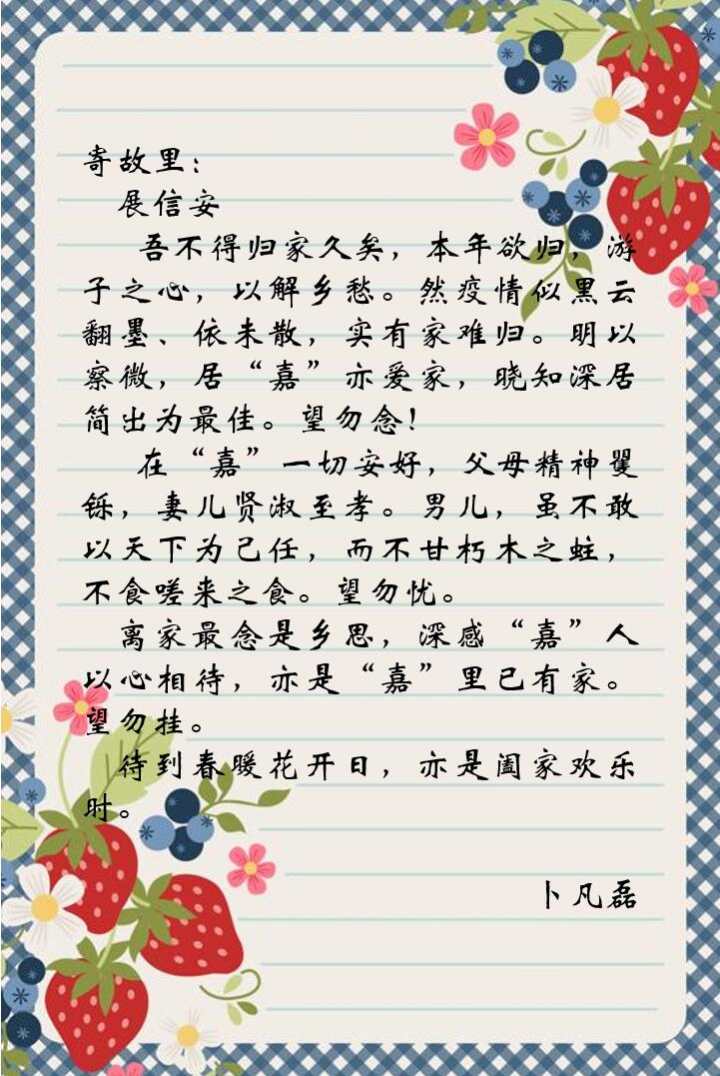 寄故里：
展信安
吾不得归家久矣，本年欲归，游
子之心，以解乡愁。然疫情似黑云
翻墨、依未散，实有家难归。明以
察微，居“嘉”亦爱家，晓知深居
简出为最佳。望勿念！
在“嘉”一切安好，父母精神矍
铄，妻儿贤淑至孝。男儿，虽不敢
以天下为己任，而不甘朽木之蛀，
不食嗟来之食。望勿忧。
离家最念是乡思，深感“嘉”人
以心相待，亦是“嘉”里已有家。
望勿挂。
待到春暖花开日，亦是阖家欢乐
时。
卜凡磊